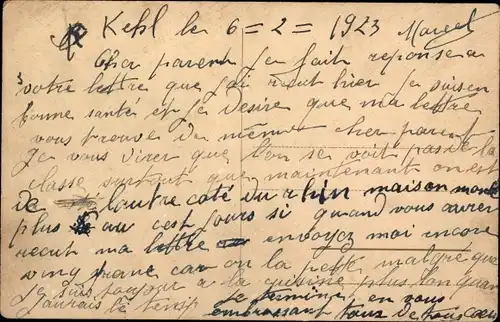 Kehl le 6=2=1923 Marcel
Cher parent Je fait reponse a
votre lettre que j'ai recut hier Je suis en
bonne santé et je desire que ma lettre
vous trouve de meme cher parent
Je vous direr que l'on se voit pas de la
classe surtout que maintenant on est
de l'autre coté du rhin maison mon
plus au ces jours si quand vous aurer
recut ma lettre envoyez moi encore
vingt franc car on la pette malgré que
je suis toujour a la cuisine plus l'on quan
j'aurais le temp Je termine en vous
embrassant tous de tous